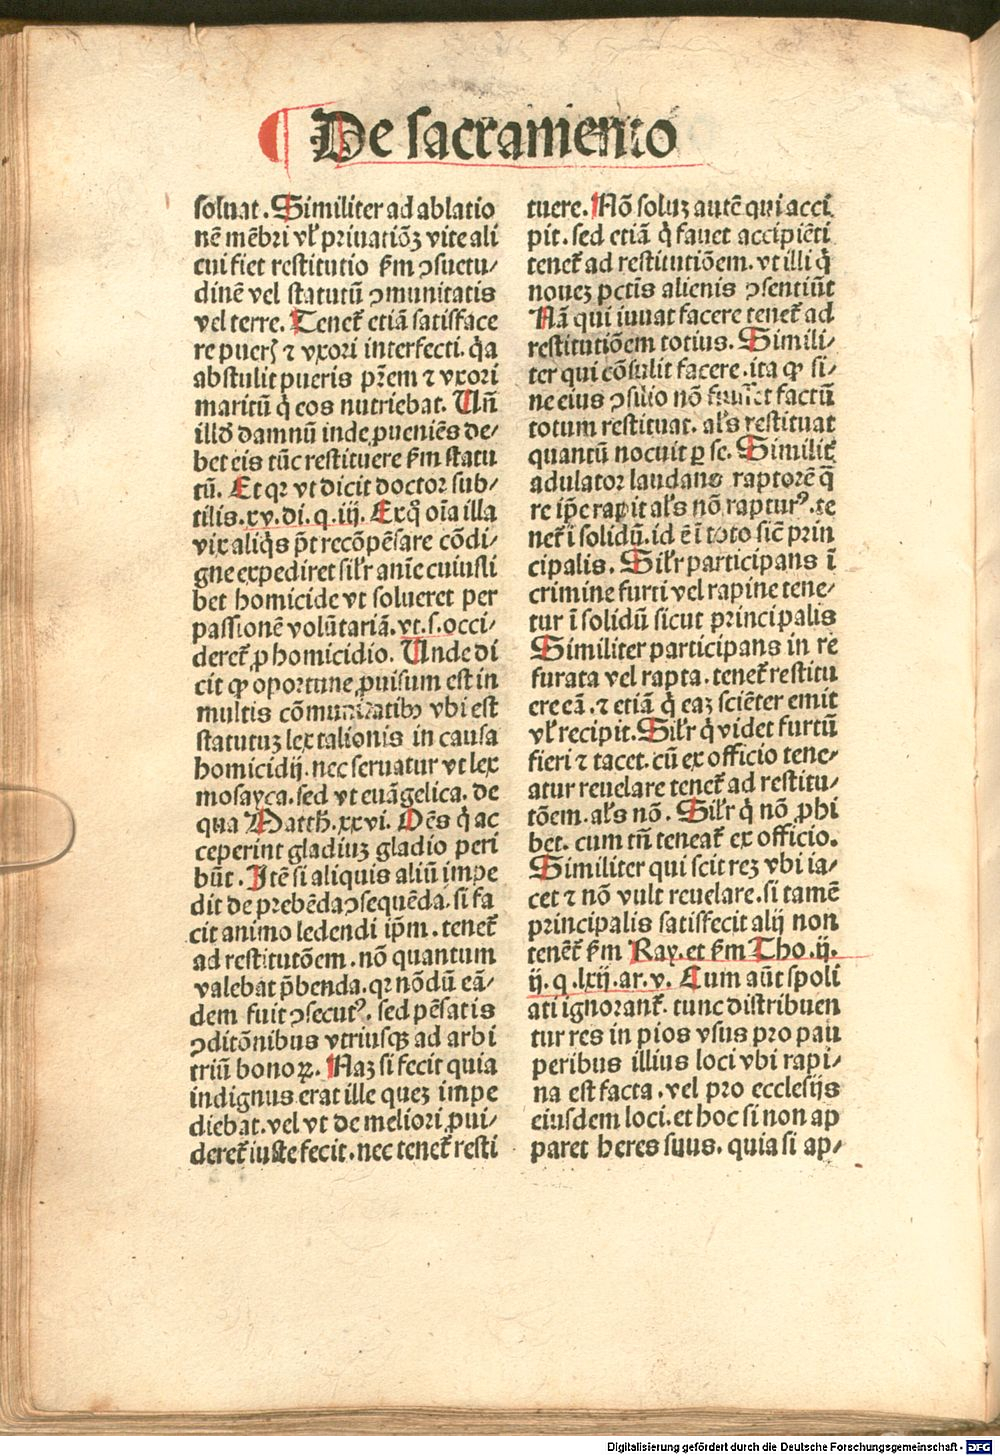 De sacramento
soluat. Similiter ad ablatio
nē mēbri vl̕ priuatiōꝫ vite ali
cui fiet restitutio ẜm ↄsuetu⸗
dinē vel statutū ↄmunitatis
vel terre. Tenet̃ etiā satisface
re pueris ⁊ vxori interfecti. q̇a
abstulit pueris pr̄em ⁊ vxori
maritū q̇ eos nutriebat. Un̄
illđ damnū inde ꝓueniēs de⸗
bet eis tūc restituere ẜm statu
tū. Et qꝛ vt dicit doctor sub⸗
tilis.xv.di.q.iij. Exq̊ oīa illa
vix aliq̇s p̄t recōpēsare cōdi⸗
gne expediret sil̕r anīe cuiusli
bet homicide vt solueret per
passionē volūtariā.vt.s.occi⸗
deret̃ ꝓ homicidio. Unde di
cit ꝙ oportune ꝓuisum est in
multis cōmunitatibꝰ vbi est
statutuꝫ lex talionis in causa
homicidij. nec seruatur vt lex
mosayca. sed vt euāgelica. de
qua Matth̄.xxvi. Oēs q̇ ac
ceperint gladiuꝫ gladio peri
būt. Itē si aliquis aliū impe
dit de prebēda ↄsequēda. si fa
cit animo ledendi ip̄m. tenet̃
ad restitutōem. nō quantum
valebat p̄benda. qꝛ nōdū eā⸗
dem fuit ↄsecutꝰ. sed pēsatis
ↄditōnibus vtriusqꝫ ad arbi
triū bonoꝝ. Naꝫ si fecit quia
indignus erat ille queꝫ impe
diebat. vel vt de meliori ꝓui⸗
deret̃ iuste fecit. nec tenet̃ resti
tuere. Nō soluꝫ autē qui acci
pit. sed etiā q̇ fauet accipiēti
tenet̃ ad restitutiōem. vt illi q̇
noueꝫ pctīs alienis ↄsentiūt
Nā qui iuuat facere tenet̃ ad
restitutiōem totius. Simili⸗
ter qui cōsulit facere. ita ꝙ si⸗
ne eius ↄsilio nō fuisset factū
totum restituat. al̕s restituat
quantū nocuit ꝑ se. Similit̃
adulator laudans raptorē q̄
re ip̄e rapit al̕s nō rapturꝰ. te
net̃ ī solidū. id ē ī toto sic̄ prin
cipalis. Sil̕r participans ī
crimine furti vel rapine tene⸗
tur ī solidū sicut principalis
Similiter participans in re
furata vel rapta. tenet̃ restitu
ere eā. ⁊ etiā q̇ eaꝫ sciēter emit
vl̕ recipit. Sil̕r q̇ videt furtū
fieri ⁊ tacet. cū ex officio tene⸗
atur reuelare tenet̃ ad restitu⸗
tōem. al̕s nō. Sil̕r q̇ nō ꝓhi
bet. cum tn̄ teneat̃ ex officio.
Similiter qui scit reꝫ vbi ia⸗
cet ⁊ nō vult reuelare. si tamē
principalis satisfecit alij non
tenēt̃ ẜm Ray. et ẜm Tho.ij.
ij.q.lxij.ar.v. Cum aūt spoli
ati ignorant̃. tunc distribuen
tur res in pios vsus pro pau
peribus illius loci vbi rapi⸗
na est facta. vel pro ecclesijs
eiusdem loci. et hoc si non ap
paret heres suus. quia si ap⸗
Digitalisierung gefördert durch die Deutsche Forschungsgemeinschaft - DFG